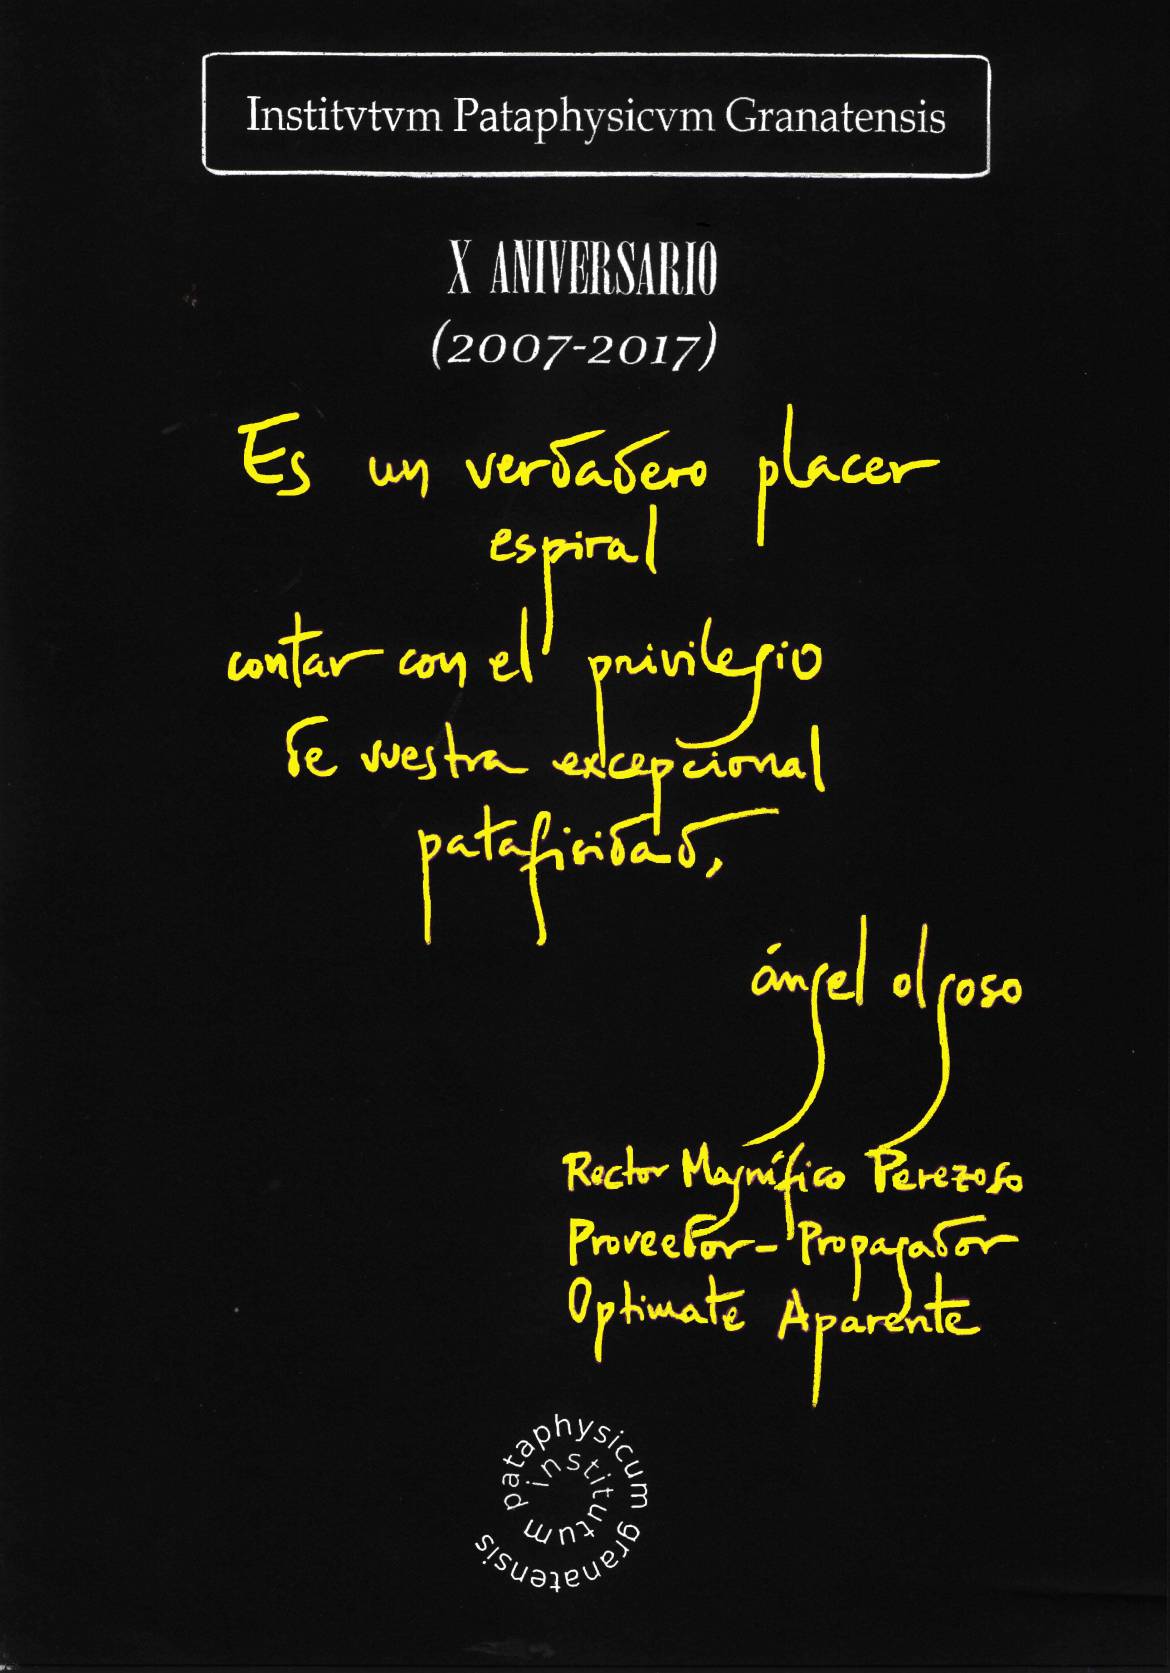 Institvtvm Pataphysicvm Granatensis
X ANIVERSARIO
(2007-2017)
Es un verdadero placer
espiral
contar con el privilegio
de vuestra excepcional
patafisidad,
ángel olgoso
Rector Magnífico Perezoso
Proveedor-Propagador
Optimate Aparente
institutum pataphysicum granatensis